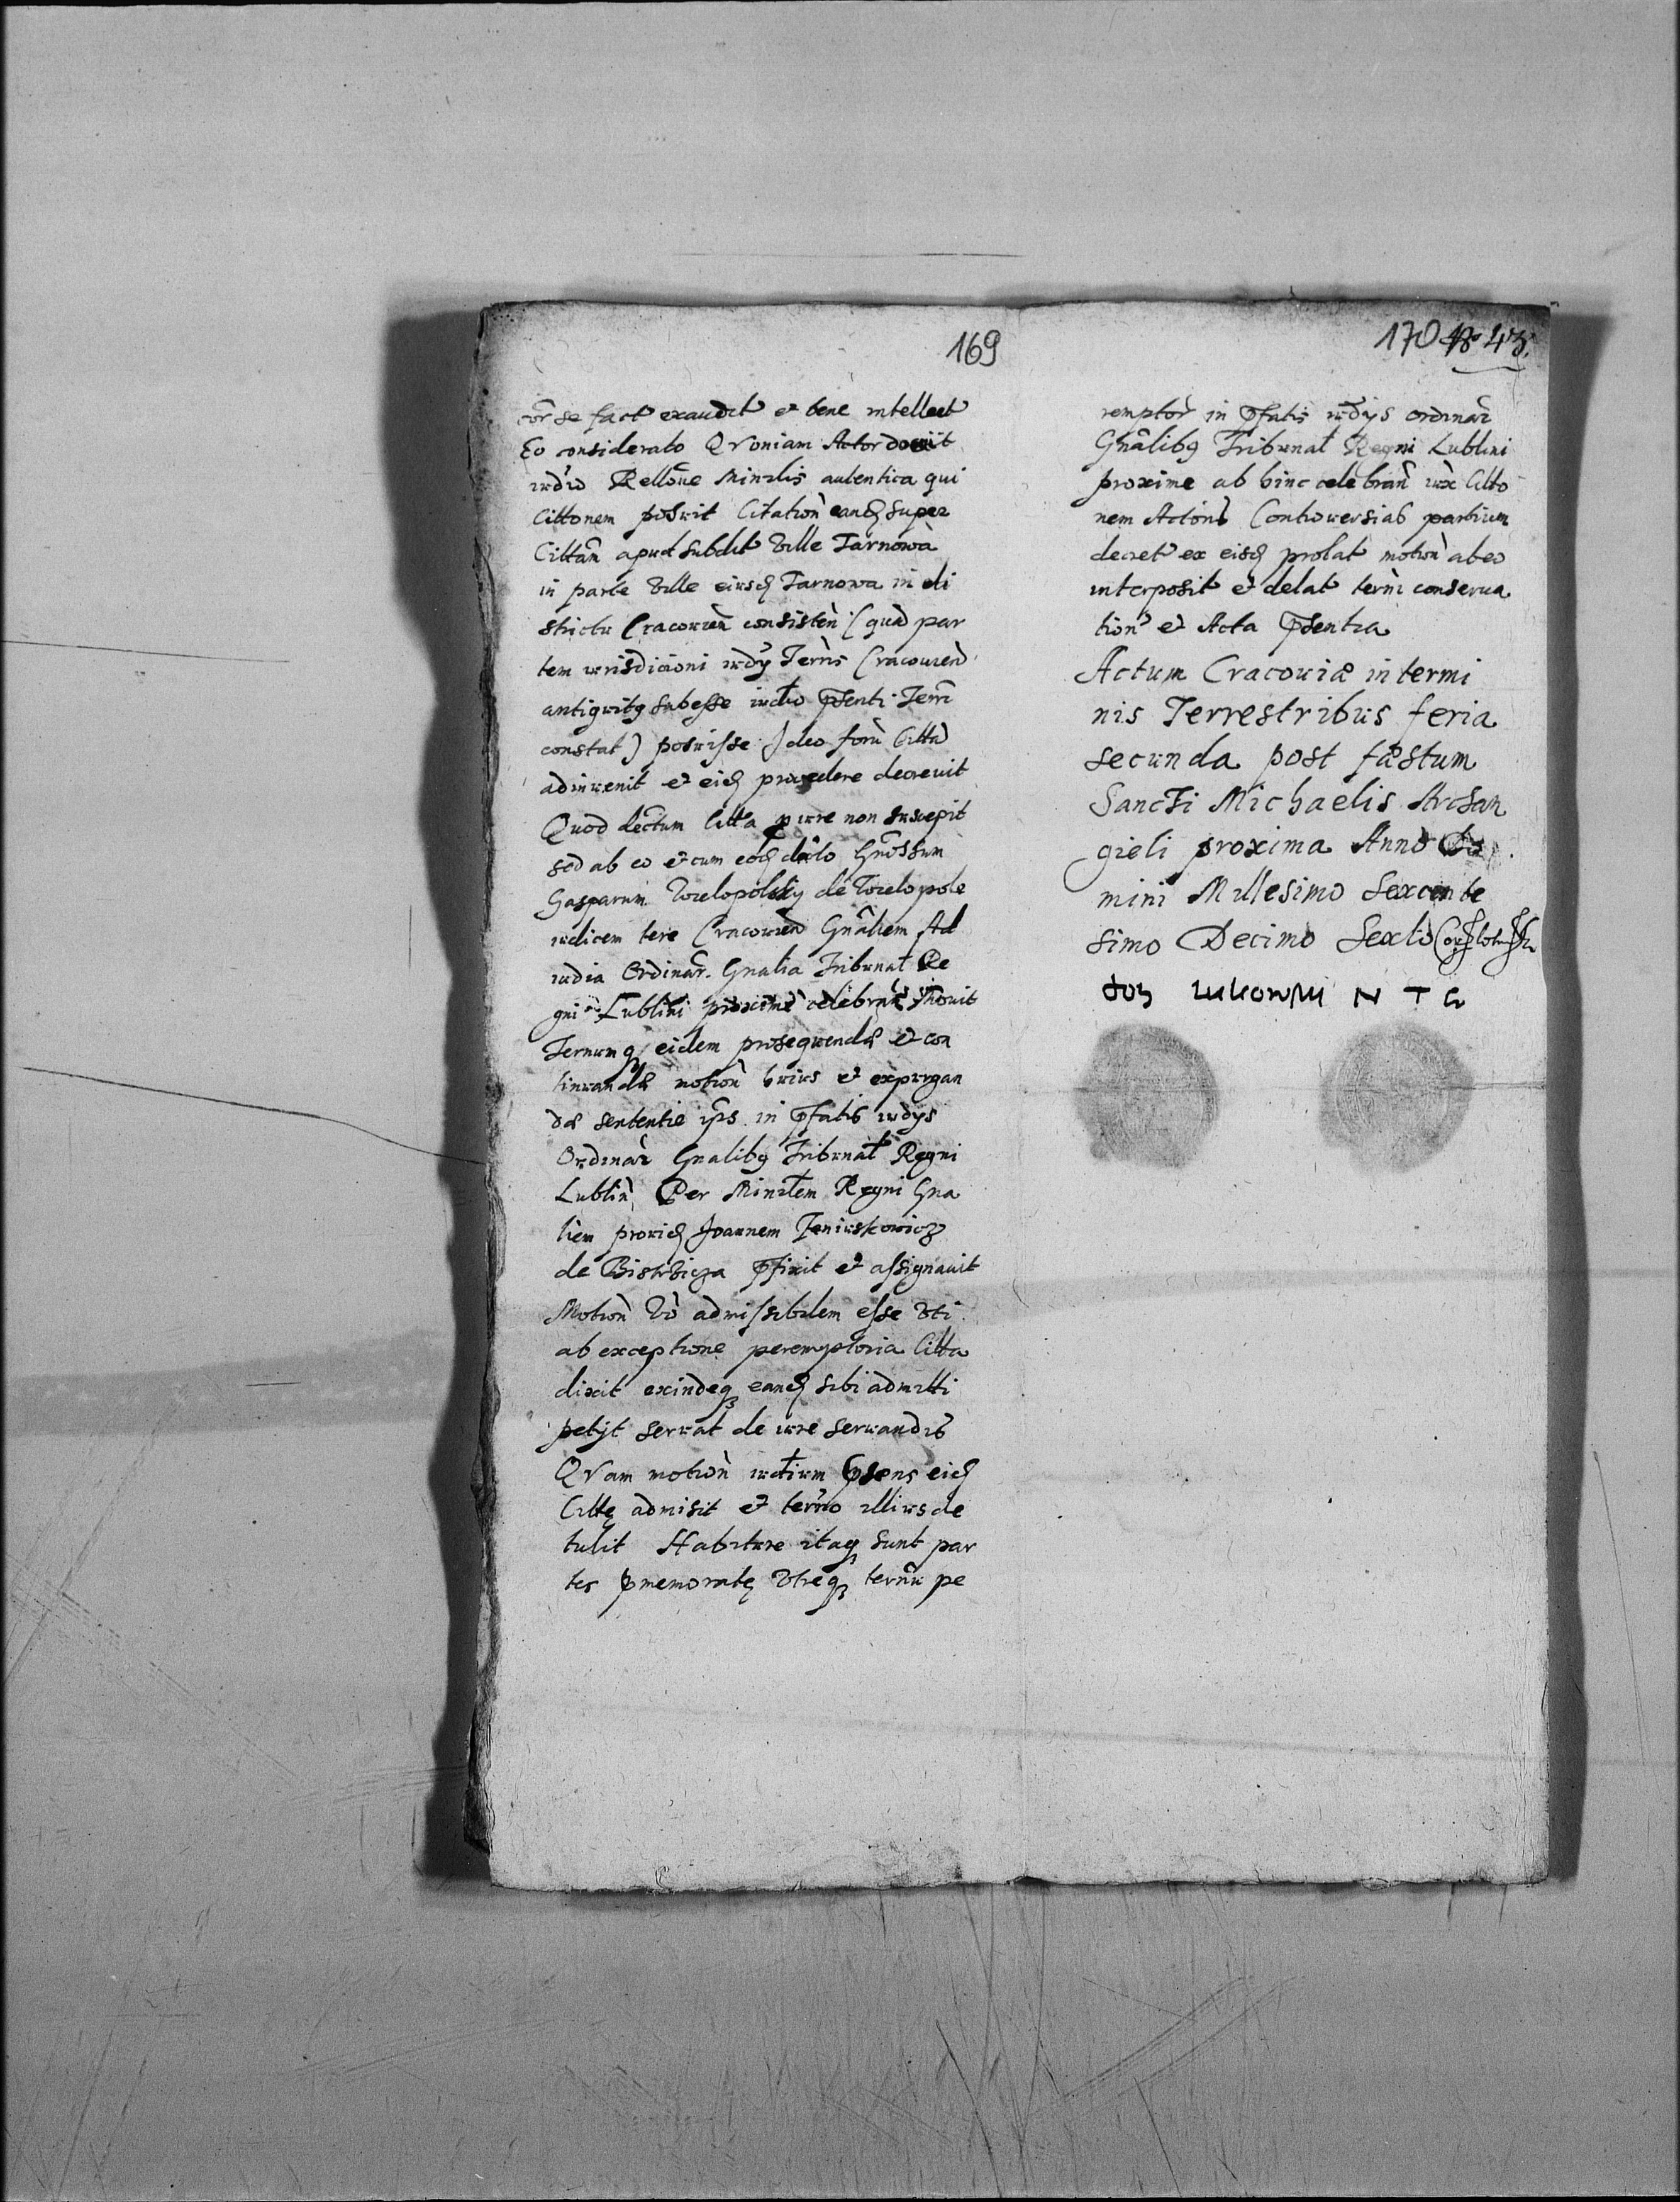 169
cor̃ se fact exaudit et bene intellect
Eo considerato Qvoniam Actor docuit
iudio Rellõne Minrlis autentica qui
Cittonem posuit Citation eand super
Cittam̃ apud subdit Ville Tarnowa
in parte Ville eiusd Tarnowa in di
strictu Cracouien consisten (quã par
tem iurisdicioni iudy Terris Cracouien
antiquitq subesse iudio pñsenti Terrĩ
constat) posuisse Ideo forũ Citta
adinuenit et eid procedere decreuit
Quod decretum Citta p iure non suscepit
sed ab eo et cum eod Gnosum
Gasparum Wielopolsky de Wielopole
iudicem terre Cracouien Gnãlem Ad
iudia Ordinar̃. Gnalia Tribunal Re
gni Lublini proxime celebran mouit
Termumq eidem prosequendæ et con
tinuandæ motion huius et expurgan
dæ sententie ips. in pfatis iudys
Ordinar Gnalibq Tribunal Regni
Lublin Per Minrlem Regni Gna
lem prouid Joannem Jeniuskowicz
de Bistrzicza pfixit et assignauit
Motion Vo admissibilem esse Vti
ab exceptione peremptoria Citta
dixit exindeq eand sibi admitti
petyt seruat de iure seruandis
Qvam motion iudium psens eid
Citte admisit et termo illius de
tulit Habiture itaq sunt par
tes pmemorate Vtreq termu pe
170 43.
remptor in pfatis iudys ordinar
Gnãlibq Tribunal Regni Lublini
proxime ab hinc celebran iux Citto
nem Actoris Controuersias partium
decret ex eisd prolat motion ab eo
interposit et delat termi conserua
tion et Acta psentia
Actum Cracouiæ in termi
nis Terrestribus feria
secunda post fæstum
Sancti Michaelis Archan
gieli proxima Anno Do
mini Millesimo Sexcente
simo Decimo Sexto
N T C